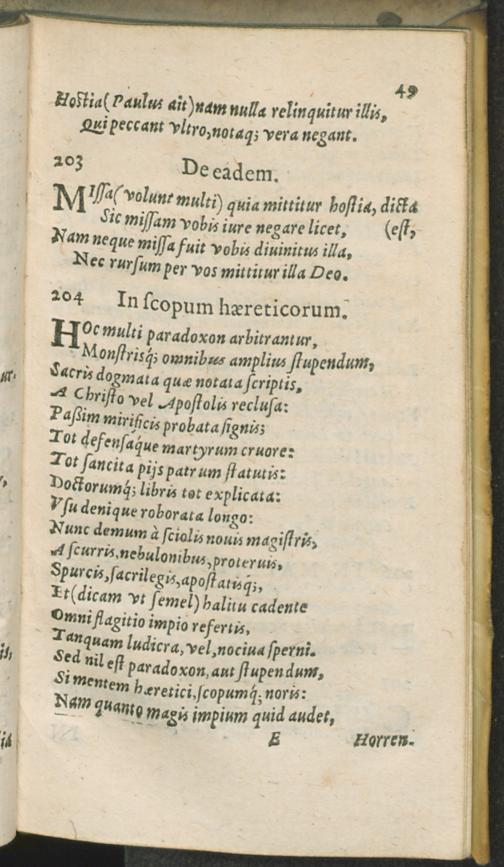 49
Hostia (Paulus ait) nam nulla relinquitur illis,
Qui peccant vltro, notaq; vera negant.
203 De eadem.
MIssa (volunt multi) quia mittitur hostia, dicta
Sic missam vobis iure negare licet, (est,
Nam neque missa fuit vobis diuinitus illa,
Nec rursum per vos mittitur illa Deo.
204 In scopum hæreticorum.
HOc multi paradoxon arbitrantur,
Monstrisq́; omnibus amplius stupendum,
Sacris dogmata quæ notata scriptis,
A Christo vel Apostolis reclusa:
Paßim mirificis probata signis;
Tot defensaque martyrum cruore:
Tot sancita pijs patrum statutis:
Doctorumq́; libris tot explicata:
Vsu denique roborata longo:
Nunc demum à sciolis nouis magistris,
A scurris, nebulonibus, proteruis,
Spurcis, sacrilegis, apostatisq́;,
Et (dicam vt semel) halitu cadente
Omni flagitio impio refertis,
Tanquam ludicra, vel, nociua sperni.
Sed nil est paradoxon, aut stupendum,
Si mentem hæretici, scopumq́; noris:
Nam quanto magis impium quid audet,
E Horren-